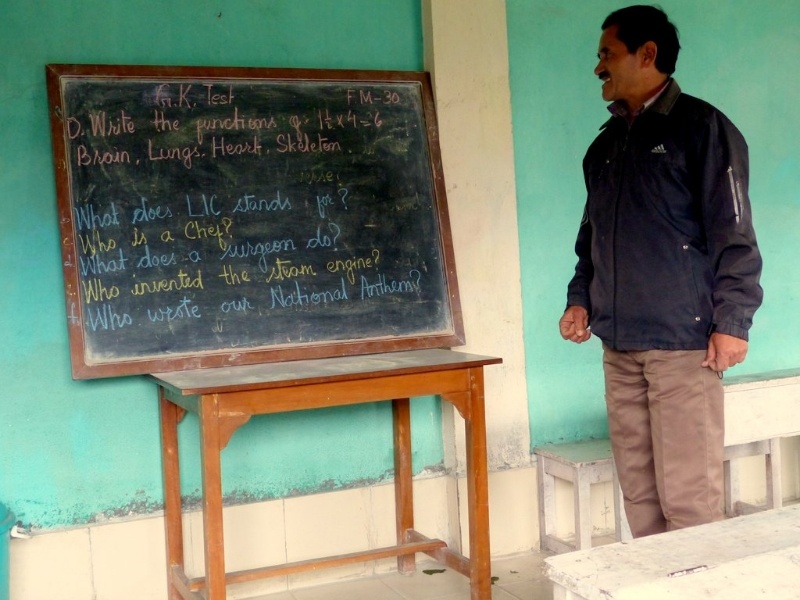 G.K. Test FM-30
1). Write the functions of 1½ x 4 = 6
Brain, Lungs. Heart, Skeleton.
What does LIC stands for?
Who is a Chef?
What does a surgeon do?
Who invented the steam engine?
f. Who wrote our National Anthem?
adidas